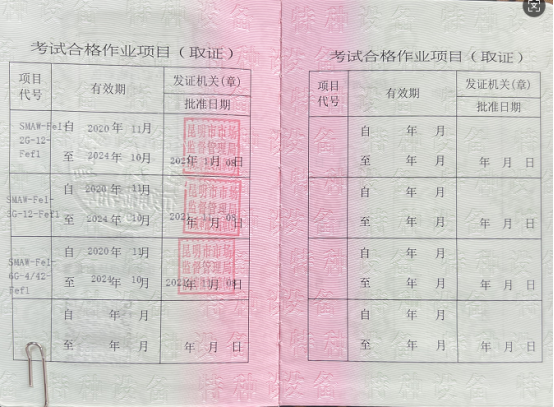 考试合格作业项目（取证）
项目代号 有效期 发证机关(章)
批准日期
SMAW-Fe1-
2G-12-
Fef1
自 2020年 11月
至 2024年 10月
昆明市市场
监督管理局
年 11月 日
SMAW-Fe1-
5G-12-Fef1
自 2020年 11月
至 2024年 10月
昆明市市场
监督管理局
年 11月 日
SMAW-Fe1-
6G-4/42-
Fef1
自 2020年 11月
至 2024年 10月
昆明市市场
监督管理局
年 11月 日
自 年 月
至 年 月
年 月 日
考试合格作业项目（取证）
项目代号 有效期 发证机关(章)
批准日期
自 年 月
至 年 月
年 月 日
自 年 月
至 年 月
年 月 日
自 年 月
至 年 月
年 月 日
自 年 月
至 年 月
年 月 日
特种设备